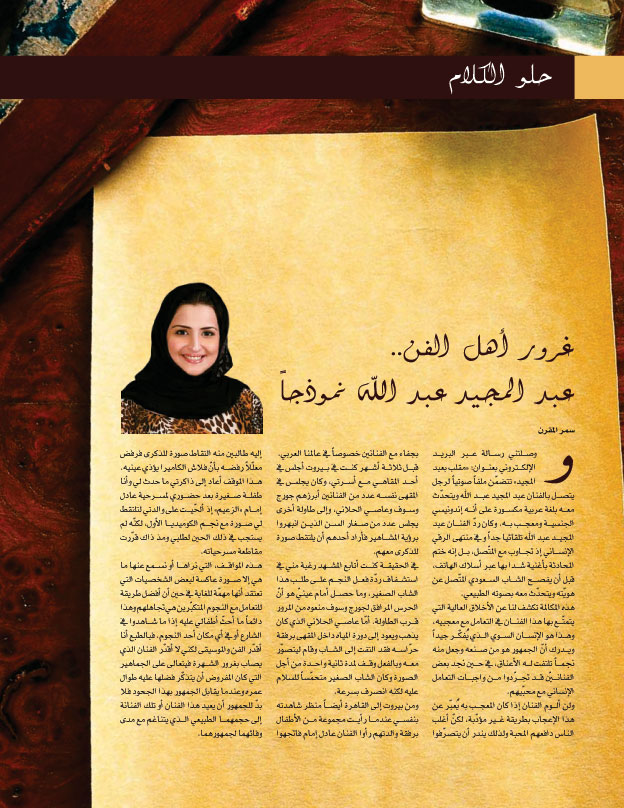 حلو الكلام
غرور أهل الفن..
عبد المجيد عبد الله نموذجاً
سمر المقرن
وصلتني رسالة عبر البريد
الإلكتروني بعنوان: «مقلب بعبد
المجيد» تتضمّن ملفاً صوتياً لرجل
يتصل بالفنان عبد المجيد عبد الله ويتحدّث
معه بلغة عربية مكسورة على أنه إندونيسي
الجنسية ومعجب به، وكان ردّ الفنان عبد
المجيد عبد الله تلقائياً جداً و في منتهى الرقي
الإنساني إذ تجاوب مع المتّصل، بل إنه ختم
المحادثة بأغنية شدا بها عبر أسلاك الهاتف،
قبل أن يفصح الشاب السعودي المتّصل عن
هويّته ويتحدّث معه بصوته الطبيعي.
هذه المكالمة تكشف لنا عن الأخلاق العالية التي
يتمتّع بها هذا الفنان في التعامل مع معجبيه،
وهذا هو الإنسان السوي الذي يُفكّر جيداً
ويدرك أنّ الجمهور هو من صنعه وجعل منه
نجماً تلتفت له الأعناق، في حين نجد بعض
الفنانين قد تجرّدوا من واجبات التعامل
الإنساني مع محبّيهم.
ولن ألوم الفنان إذا كان المعجب به يُعبّر عن
هذا الإعجاب بطريقة غير مؤدّبة، لكنّ أغلب
الناس دافعهم المحبة ولذلك يندر أن يتصرّفوا
بجفاء مع الفنانين خصوصاً في عالمنا العربي.
قبل ثلاثة أشهر كنت في بيروت أجلس في
أحد المقاهي مع أسرتي، وكان يجلس في
المقهى نفسه عدد من الفنانين أبرزهم جورج
وسوف وعاصي الحلاني، وإلى طاولة أخرى
يجلس عدد من صغار السن الذين انبهروا
برؤية المشاهير فأراد أحدهم أن يلتقط صورة
للذكرى معهم.
في الحقيقة كنت أتابع المشهد رغبة مني في
استشفاف ردّة فعل النجم على طلب هذا
الشاب الصغير، وما حصل أمام عينيّ هو أنّ
الحرس المرافق لجورج وسوف منعوه من المرور
قرب الطاولة، أمّا عاصي الحلاني الذي كان
يذهب ويعود إلى دورة المياه داخل المقهى برفقة
حرّاسه فقد التفت إلى الشاب وقام ليتصوّر
معه وبالفعل وقف لمدة ثانية واحدة من أجل
الصورة وكان الشاب الصغير متحمّساً للسلام
عليه لكنه انصرف بسرعة.
ومن بيروت إلى القاهرة أيضاً منظر شاهدته
بنفسي عندما رأيت مجموعة من الأطفال
برفقة والدتهم رأوا الفنان عادل إمام فاتّجهوا
إليه طالبين منه التقاط صورة للذكرى فرفض
معللاً رفضه بأنّ فلاش الكاميرا يؤذي عينيه.
هذا الموقف أعاد إلى ذاكرتي ما حدث لي وأنا
طفلة صغيرة بعد حضوري لمسرحية عادل
إمام «الزعيم»، إذ ألحّيت على والدتي لتلتقط
لي صورة مع نجم الكوميديا الأول، لكنّه لم
يستجب في ذلك الحين لطلبي ومذ ذاك قرّرت
مقاطعة مسرحياته.
هذه المواقف، التي نراها أو نسمع عنها ما
هي إلا صورة عاكسة لبعض الشخصيات التي
تعتقد أنها مهمّة للغاية في حين أن أفضل طريقة
للتعامل مع النجوم المتكبّرين هي تجاهلهم وهذا
دائماً ما أحثّ أطفالي عليه إذا ما شاهدوا في
الشارع أو في أي مكان أحد النجوم، فبالطبع أنا
أقدّر الفن والموسيقى لكني لا أقدّر الفنان الذي
يصاب بغرور الشهرة فيتعالى على الجماهير
التي كان المفروض أن يتذكّر فضلها عليه طوال
عمره وعندما يقابل الجمهور بهذا الجحود فلا
بدّ للجمهور أن يعيد هذا الفنان أو تلك الفنانة
إلى حجمهما الطبيعي الذي يتناغم مع مدى
وفائهما لجمهورهما.